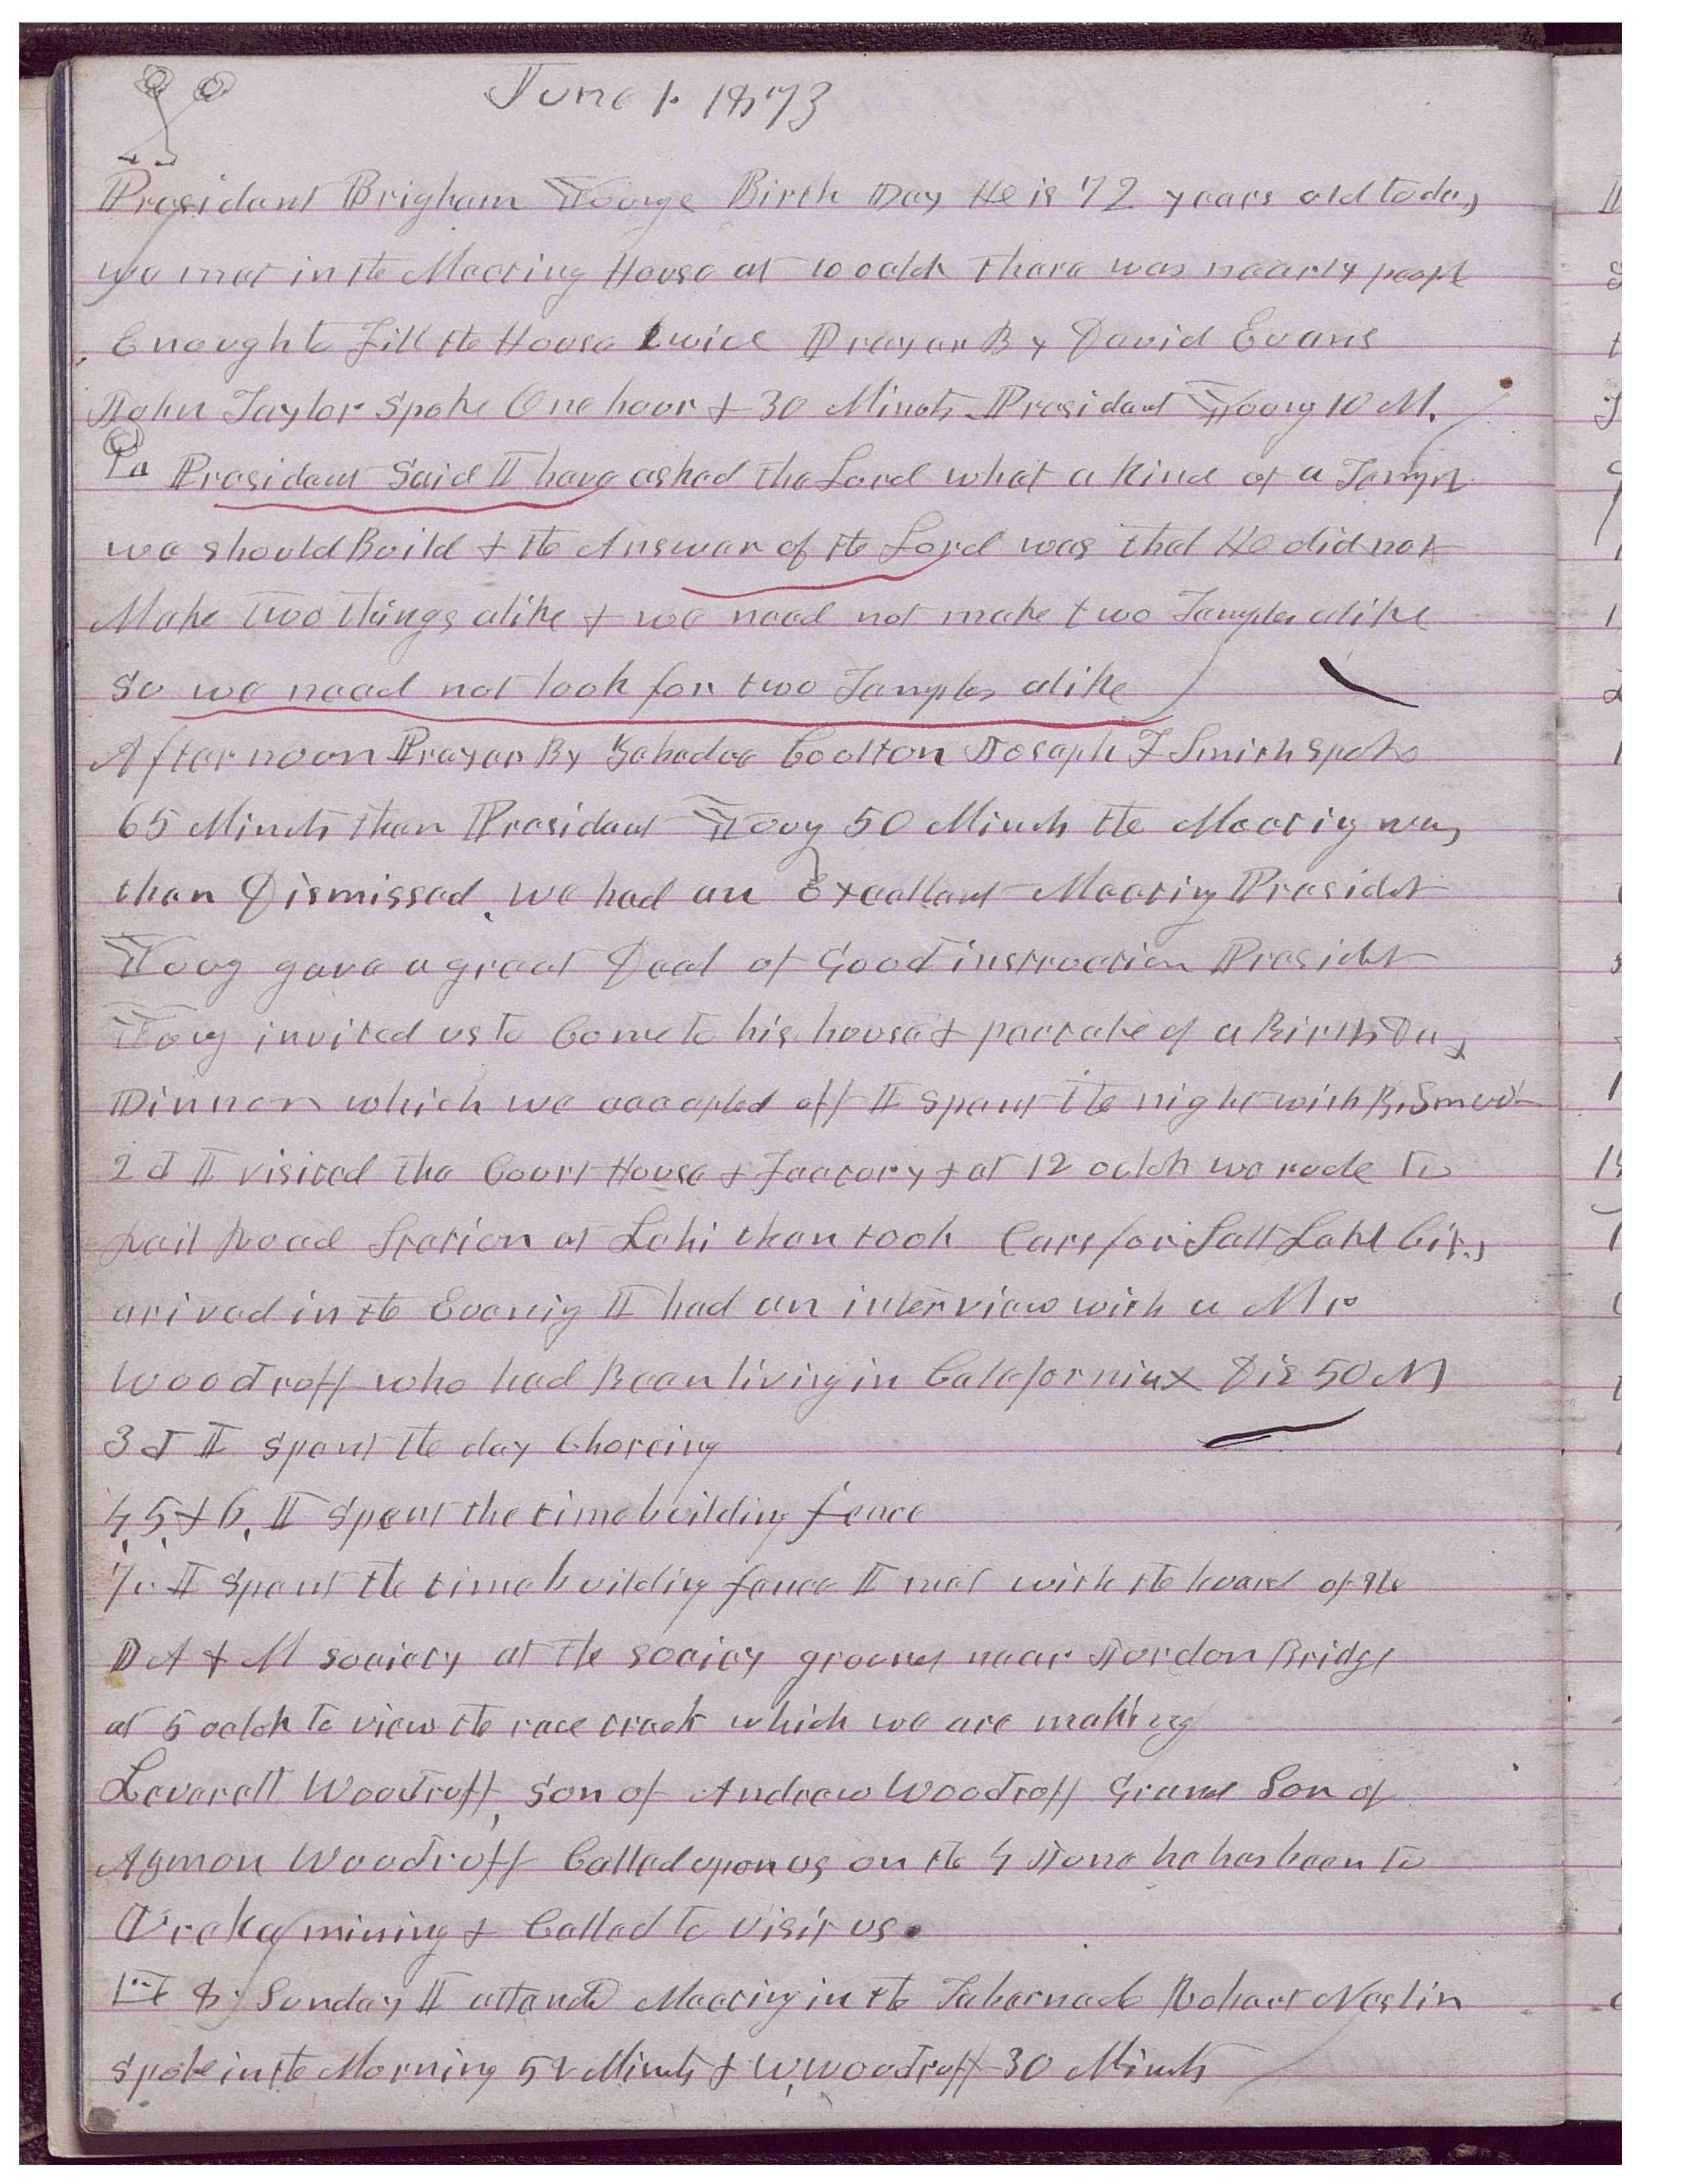 June 1. 1873
President Brigham Youngs Birth Day He is 72 years old today
we met in the Meeting House at 10 oclok there was nearly peopl
Enough to Fill the House twice Prayer By David Evans
John Taylor Spoke One hour & 30 Minuts President Young 10 M.
President Said I have asked the Lord what a kind of a Templ
we should Build & the Answer of the Lord was that He did not
Make Two things alike & we need not make two Temples alike
So we need not look for two Temples alike
Afternoon Prayer By Zebedee Coolton Joseph F Smith spoke
65 Minuts then President Young 50 Minuts the Meeting was
then Dismissed. we had an Excellent Meeting Presidet
Young gave a great Deal of Good instruction Presidet
Young invited us to Come to his house & partake of a Birth Day
Dinner which we accepted off I spent the night with B, Smoot
2d I visited the Court House & Factory & at 12 oclok we rode to
Rail Road Station at Lehi then took Cars for Salt Lake City
arived in the Evening I had an interview with a Mr
Woodruff who had Been living in Calaforniax Dis 50 M
3d I spent the day Choreing
4, 5, & 6, I spent the time building fence
7. I spent the time building fence I met with the board of the
D A & M society at the society ground near Jordon Bridge
at 5 oclok to view the race track which we are making
Leverett Woodruff, Son of Andrew Woodruff Grand Son of
Azmon Woodruff Called upon us on the 4 June he has been to
Ureka mining & Called to visit us.
8, Sunday I attend Meeting in the Tabernacle Robert Neslin
spoke in the Morning 52 Minuts & W, Woodruff 30 Minuts